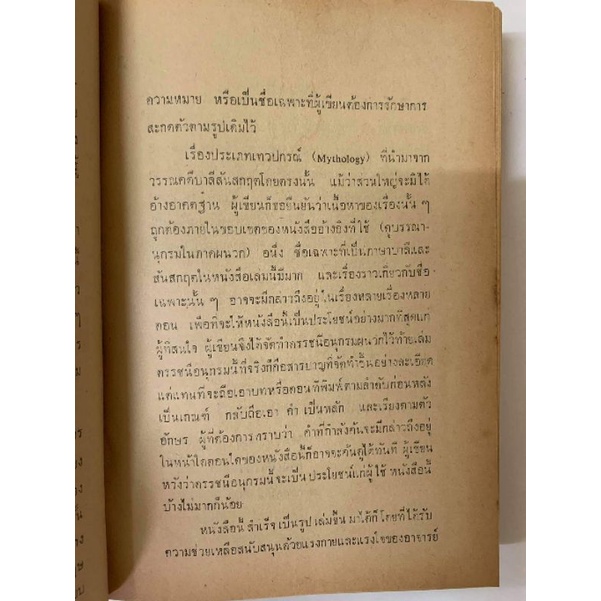 ความหมาย หรือเป็นชื่อเฉพาะที่ผู้เขียนต้องการรักษาการ
สะกดตัวตามรูปเดิมไว้
เรื่องประเภทเทวปกรณ์ (Mythology) ที่นำมาจาก
วรรณคดีบาลีสันสกฤตโดยตรงนั้น แม้ว่าส่วนใหญ่จะมิได้
อ้างอาคตฐาน ผู้เขียนก็ขอยืนยันว่าเนื้อหาของเรื่องนั้น ๆ
ถูกต้องภายในขอบเขตของหนังสืออ้างอิงที่ใช้ (ดูบรรณา-
นุกรมในภาคผนวก) อนึ่ง ชื่อเฉพาะที่เป็นภาษาบาลีและ
สันสกฤตในหนังสือเล่มนี้มีมาก และเรื่องราวเกี่ยวกับชื่อ
เฉพาะนั้น ๆ อาจจะมีกล่าวถึงอยู่ในเรื่องหลายเรื่องหลาย
ตอน เพื่อที่จะให้หนังสือนี้เป็นประโยชน์อย่างมากที่สุดแก่
ผู้ที่สนใจ ผู้เขียนจึงได้จัดทำดรรชนีอนุกรมผนวกไว้ท้ายเล่ม
ดรรชนีอนุกรมนี้ที่จริงก็คือสารบาญที่จัดทำขึ้นอย่างละเอียด
แต่แทนที่จะถือเอาบทหรือตอนที่พิมพ์ตามลำดับก่อนหลัง
เป็นเกณฑ์ กลับถือเอา คำ เป็นหลัก และเรียงตามตัว
อักษร ผู้ที่ต้องการทราบว่า คำที่กำลังค้นจะมีกล่าวถึงอยู่
ในหน้าใดตอนใดของหนังสือนี้ก็อาจจะค้นดูได้ทันที ผู้เขียน
หวังว่าดรรชนีอนุกรมนี้จะเป็นประโยชน์แก่ผู้ใช้ หนังสือนี้
บ้างไม่มากก็น้อย
หนังสือนี้สำเร็จเป็นรูปเล่มขึ้นมาได้ก็โดยที่ได้รับ
ความช่วยเหลือสนับสนุนด้วยแรงกายและแรงใจของอาจารย์